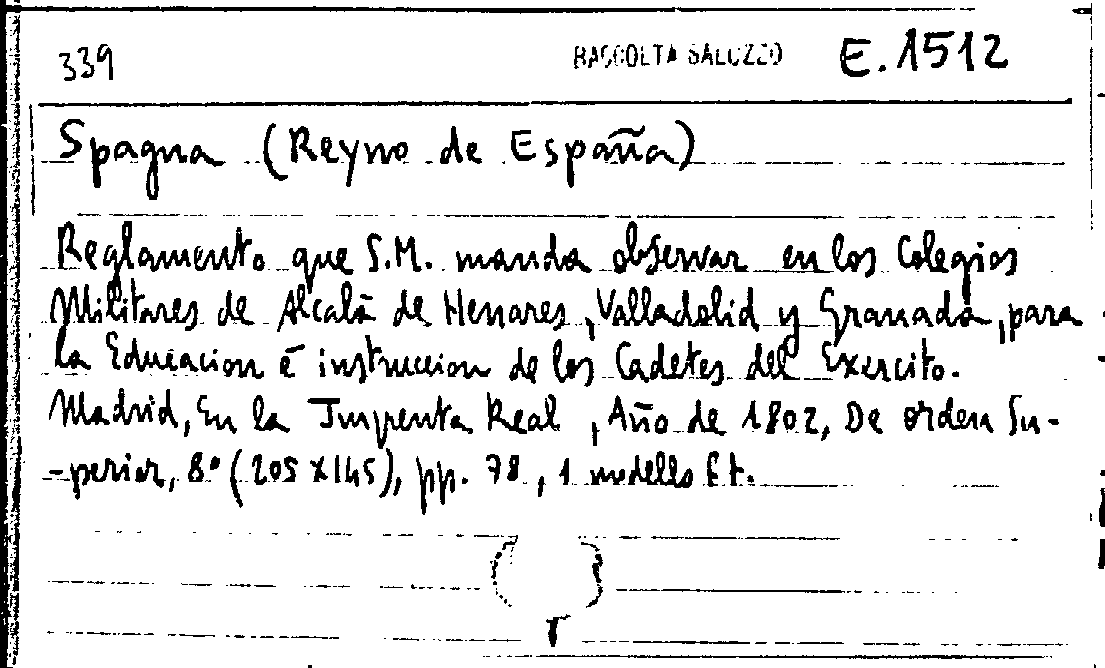 339 RACCOLTA SALUZZO E.1512
Spagna (Reyno de España)
Reglamento que S.M. manda observar en los Colegios
Militares de Alcalà de Henares, Valladolid y Granada, para
la Educacion é instruccion de los Cadetes del Exercito.
Madrid, En la Imprenta Real, Año de 1802, De orden Su-
-perior, 8° (205x145), pp. 78, 1 modello f.t.